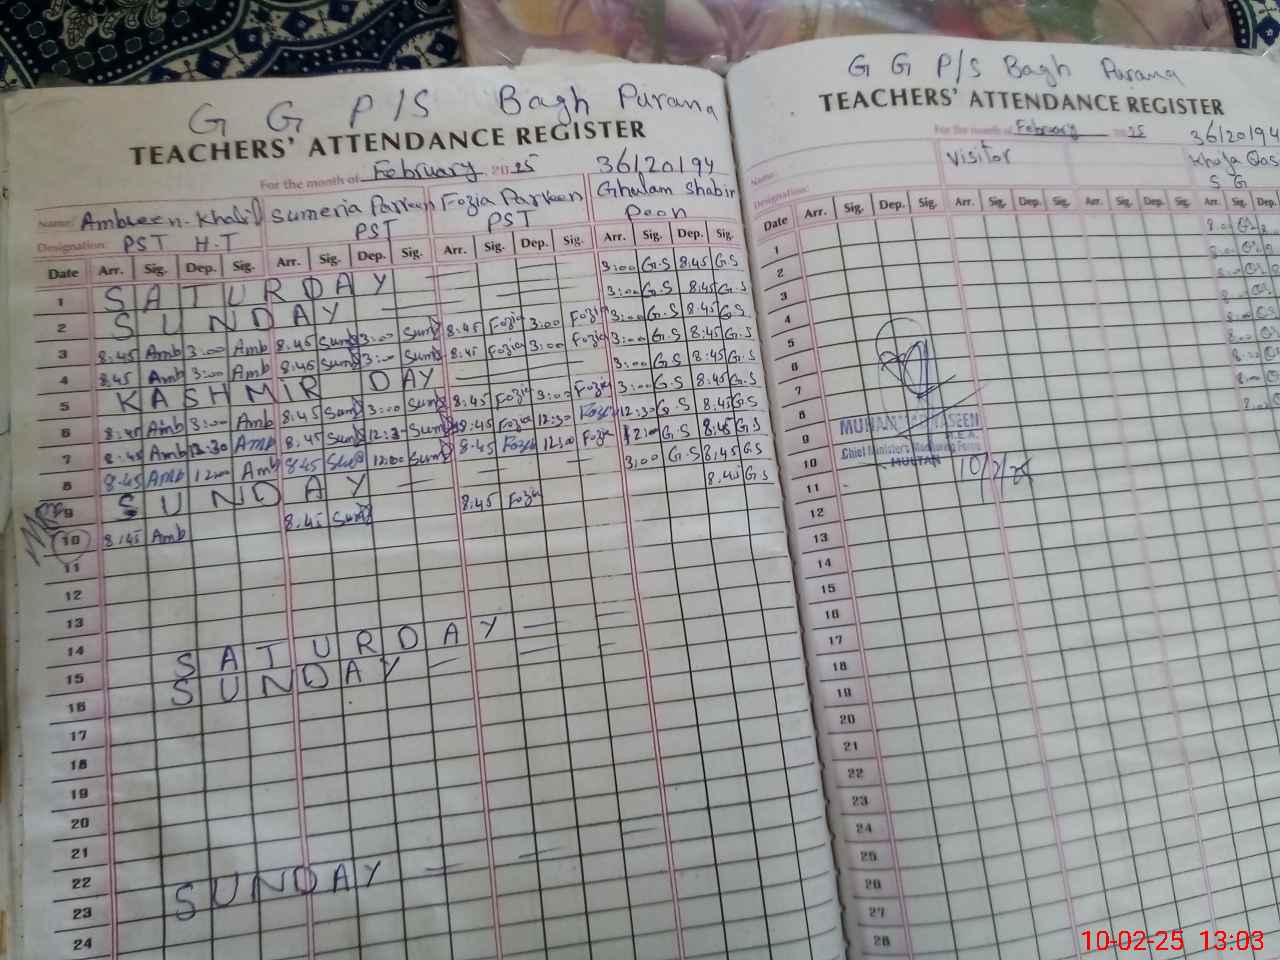 G G P/S Bagh Purana
TEACHERS' ATTENDANCE REGISTER
For the month of February 2025 36120194
Name: Ambreen Khalil Sumeria Parveen Fozia Parveen Ghulam Shabir
Designation: PST H.T PST PST Peon
Date Arr. Sig. Dep. Sig. Arr. Sig. Dep. Sig. Arr. Sig. Dep. Sig. Arr. Sig. Dep. Sig.
3:00 G.S 8:45 G.S
1 SATURDAY 3:00 G.S 8:45 G.S
2 SUNDAY 3:00 G.S 8:45 G.S
3 8:45 Amb 3:00 Amb 8:45 Sum 3:00 Sum 8:45 Fozia 3:00 Fozia 3:00 G.S 8:45 G.S
4 8:45 Amb 3:00 Amb 8:45 Sum 3:00 Sum 8:45 Fozia 3:00 Fozia 3:00 G.S 8:45 G.S
5 KASHMIR DAY 3:00 G.S 8:45 G.S
6 8:45 Amb 3:00 Amb 8:45 Sum 3:00 Sum 8:45 Fozia 3:00 Fozia 12:30 G.S 8:45 G.S
7 8:45 Amb 12:30 Amb 8:45 Sum 12:30 Sum 8:45 Fozia 12:30 Fozia 12:00 G.S 8:45 G.S
8 8:45 Amb 12:00 Amb 8:45 12:00 Sum 8:45 Fozia 12:00 Fozia 3:00 G.S 8:45 G.S
9 SUNDAY 8:45 G.S
10 8:45 Amb 8:45 Sum 8:45 Fozia
11
12
13
14
15 SATURDAY
16 SUNDAY
17
18
19
20
21
22
23 SUNDAY
24
G G P/S Bagh Purana
TEACHERS' ATTENDANCE REGISTER
For the month of February 2025 36120194
Name: Visitor
Designation: S G
Date Arr. Sig. Dep. Sig. Arr. Sig. Dep. Sig. Arr. Sig. Dep. Sig. Arr. Sig. Dep.
1
2
3
4
5
6
7
8
9
10
11
12
13
14
15
16
17
18
19
20
21
22
23
24
25
26
27
28
MUHAMMAD NASEEN
M.E.A.
Chief Minister's Monitoring Force
MULTAN 10/2/25
10-02-25 13:03